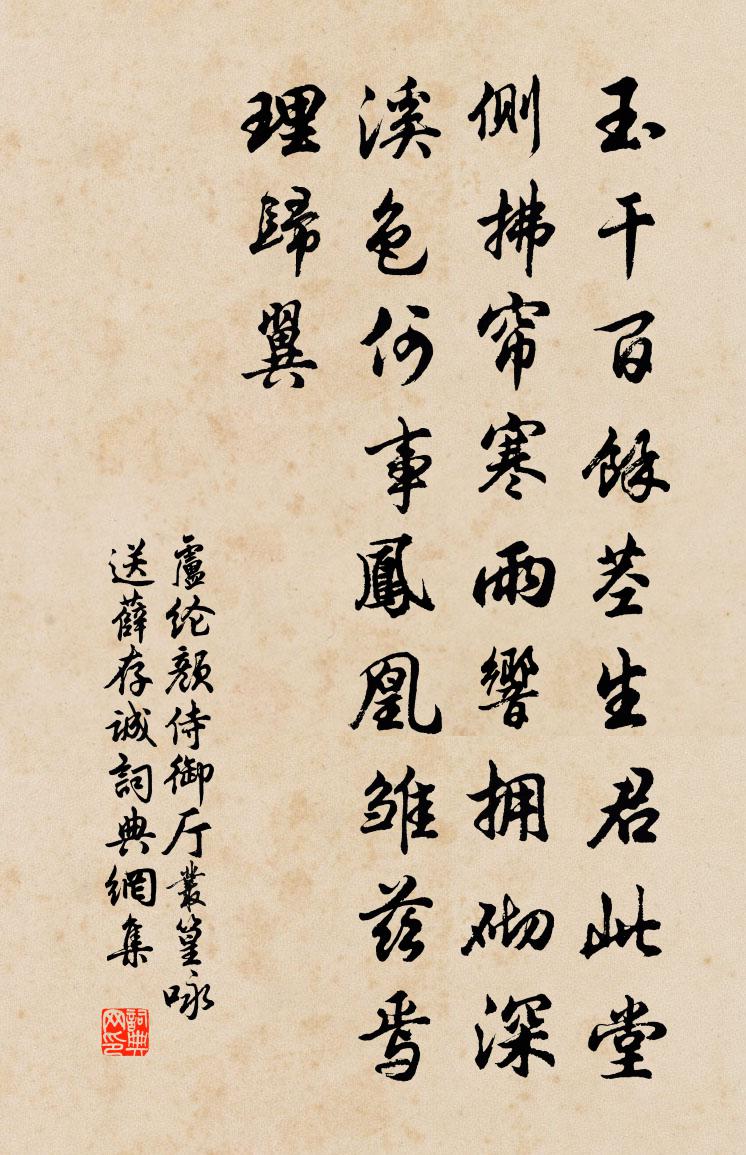 玉干百餘茎生君此堂
側拂帘寒雨響拥砌深
溪色何事鳳凰雏兹焉
理歸翼
盧纶颜侍御厅叢篁咏
送薛存诚詞典網集
詞典网印